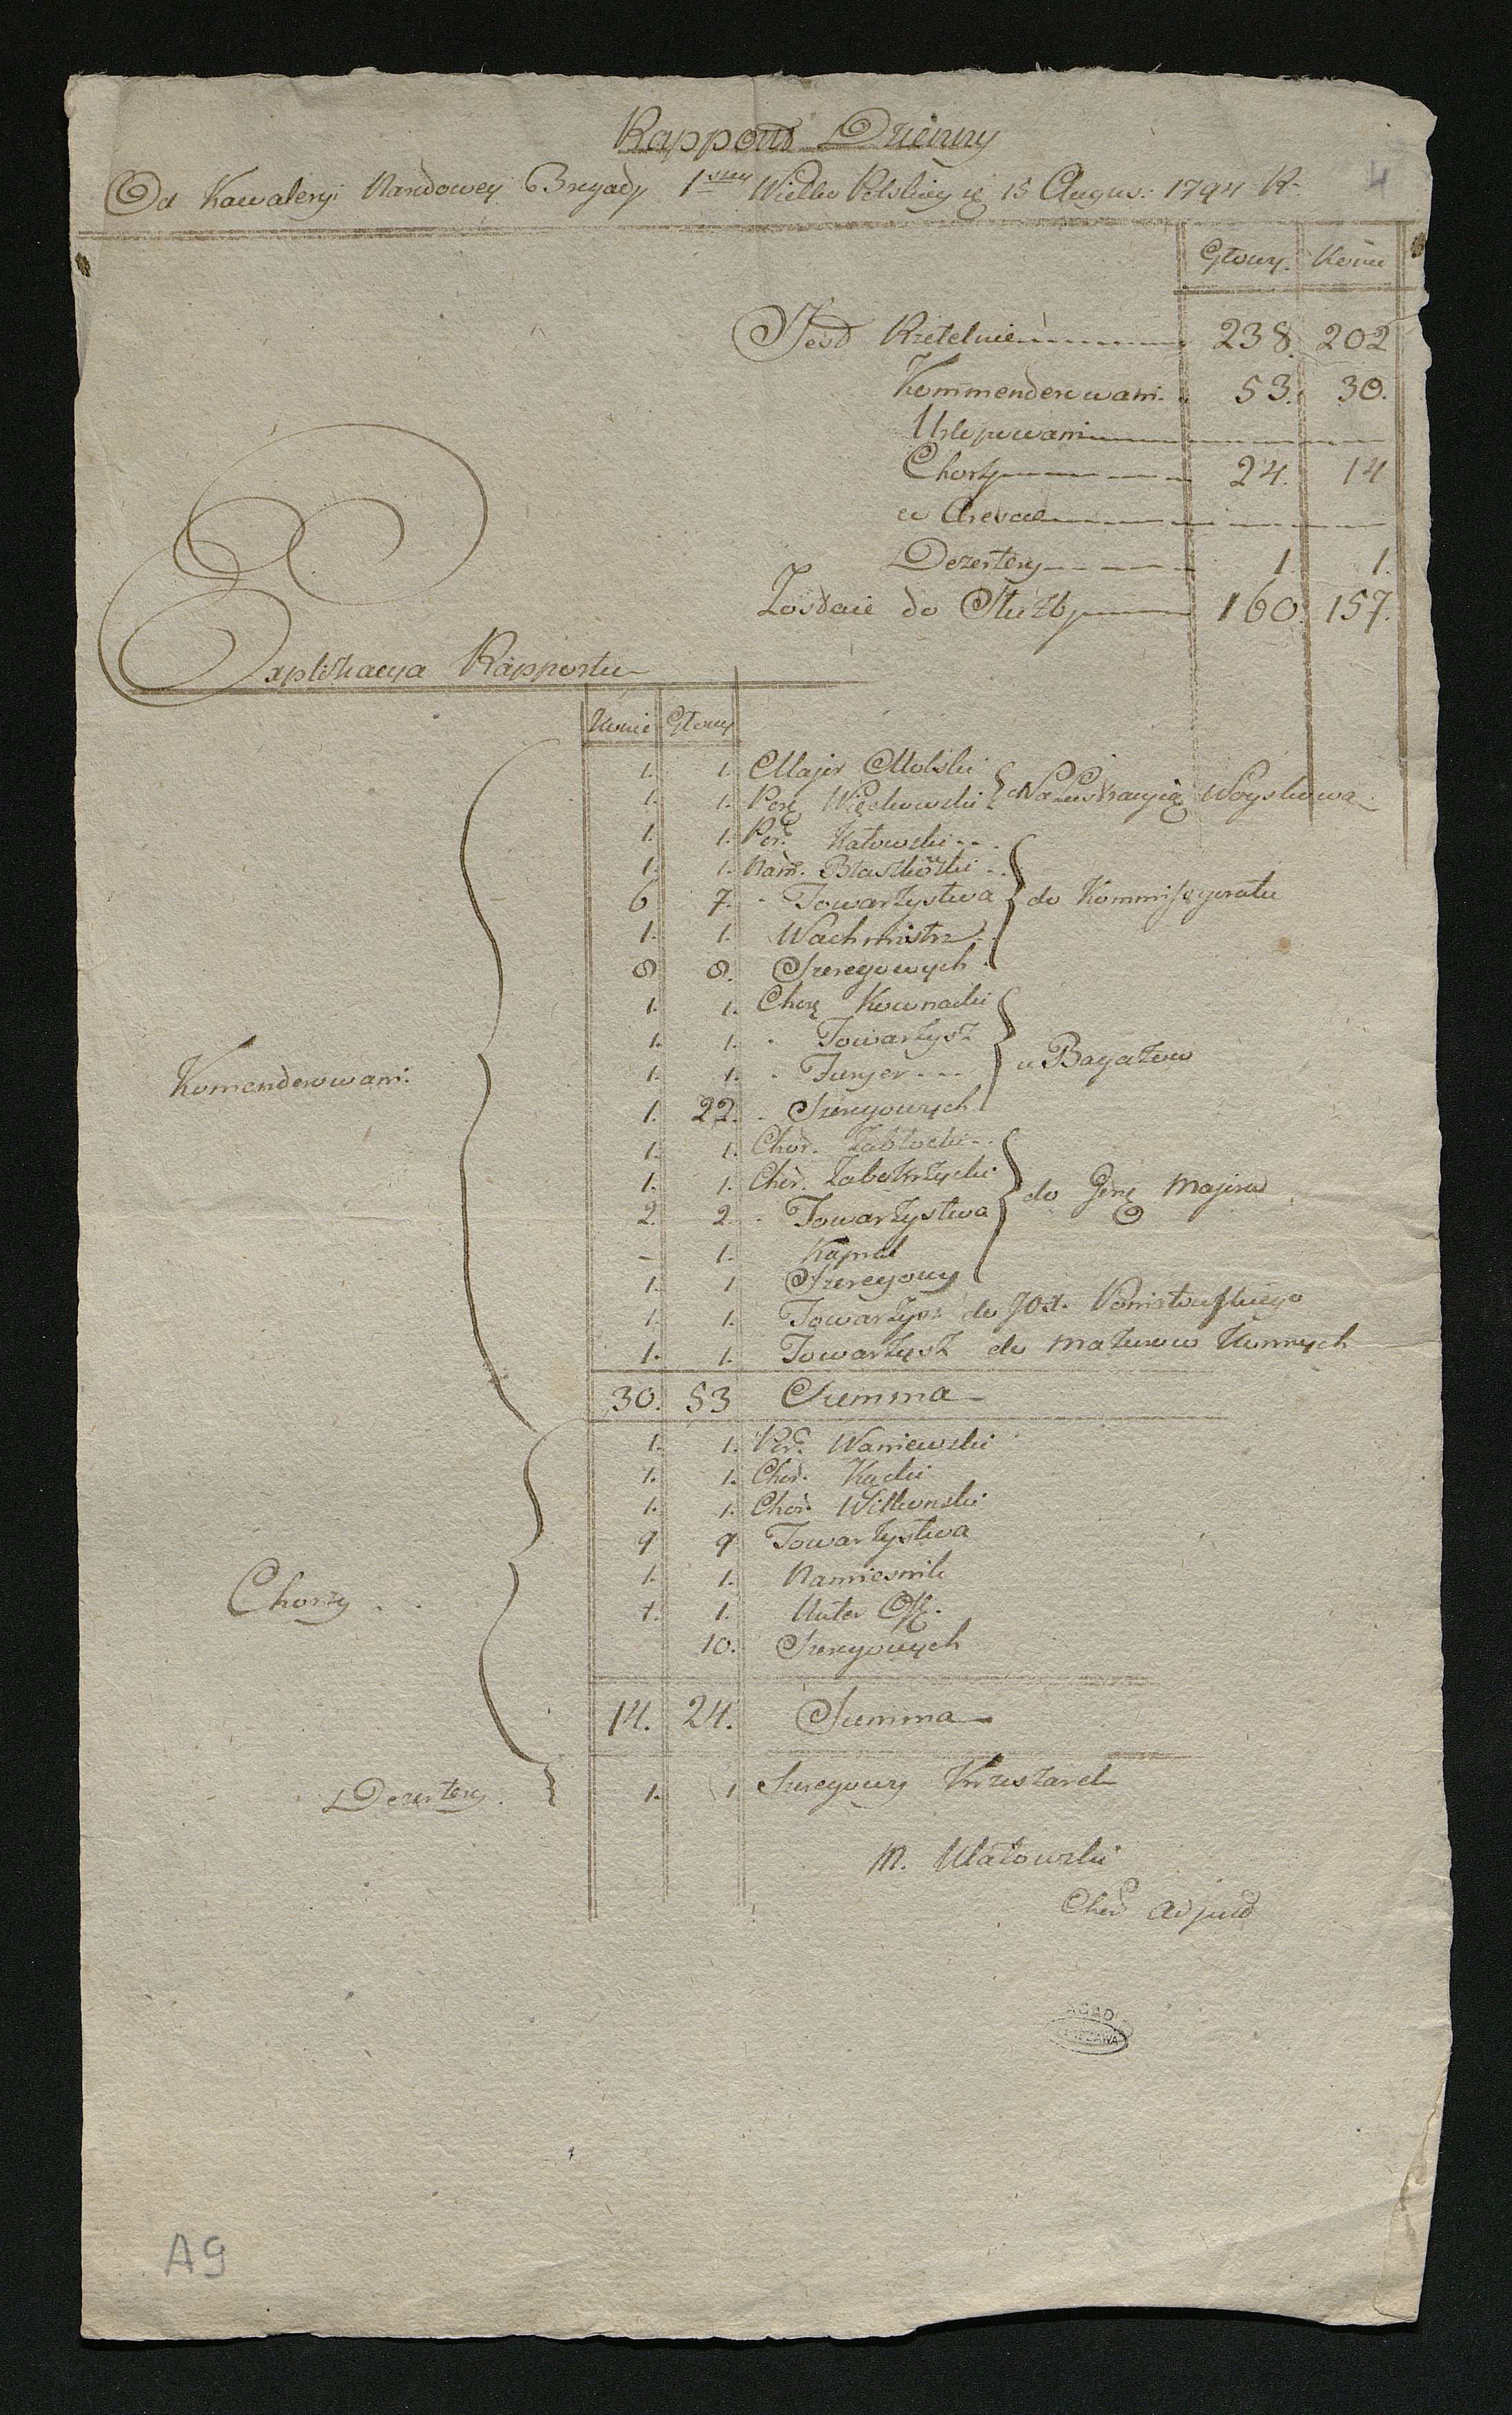 Rapport Dzienny
Od Kawaleryi Narodowey Brygady 1szey Wielko Polskiey 15 Augus: 1794 R.
4
Głowy. Konie
Jest Rzetelnie 238. 202
Kommenderowani. 53. 30.
Urlopowani
Chorzy 24. 14
w Areszcie
Dezertery 1 1.
Zostaie do Służby 160. 157.
Explikacya Rapportu
Konie Głowy
1. 1. Major Molski
1. 1. Porę Więckowski Woyskową
1. 1. Por. Katowski
1. 1. Nam.
6 7. Towarzystwa do Kommissyoratu
1. 1. Wachmistrz
8 8. Szeregowych
1. 1. Chorę Kownacki
1. 1. Towarzysz
1. 1. Furyer u Bagażow
Komenderowani.
1. 22. Szeregowych
1. 1. Chor. Zabłocki
1. 1. Chor. Zabokrzycki
2. 2. Towarzystwa do Genę Majora
– 1. Kapral
1. 1 Szeregowy
1. 1. Towarzysz do Poniatowskiego
1. 1. Towarzysz do Mazurow Konnych
30. 53 Summa
1. 1. Por. Waniewski
1. 1. Chor. Kącki
1. 1. Chor. Witkowski
9 9 Towarzystwa
1. 1. Namiesnik
Chorzy
1. 1. Unter Off.
10. Szeregowych
14. 24. Summa
Dezertery. 1. 1 Szeregowy
M. Ułatowski
Chor adjut
AGAD
WARSZAWA
A9